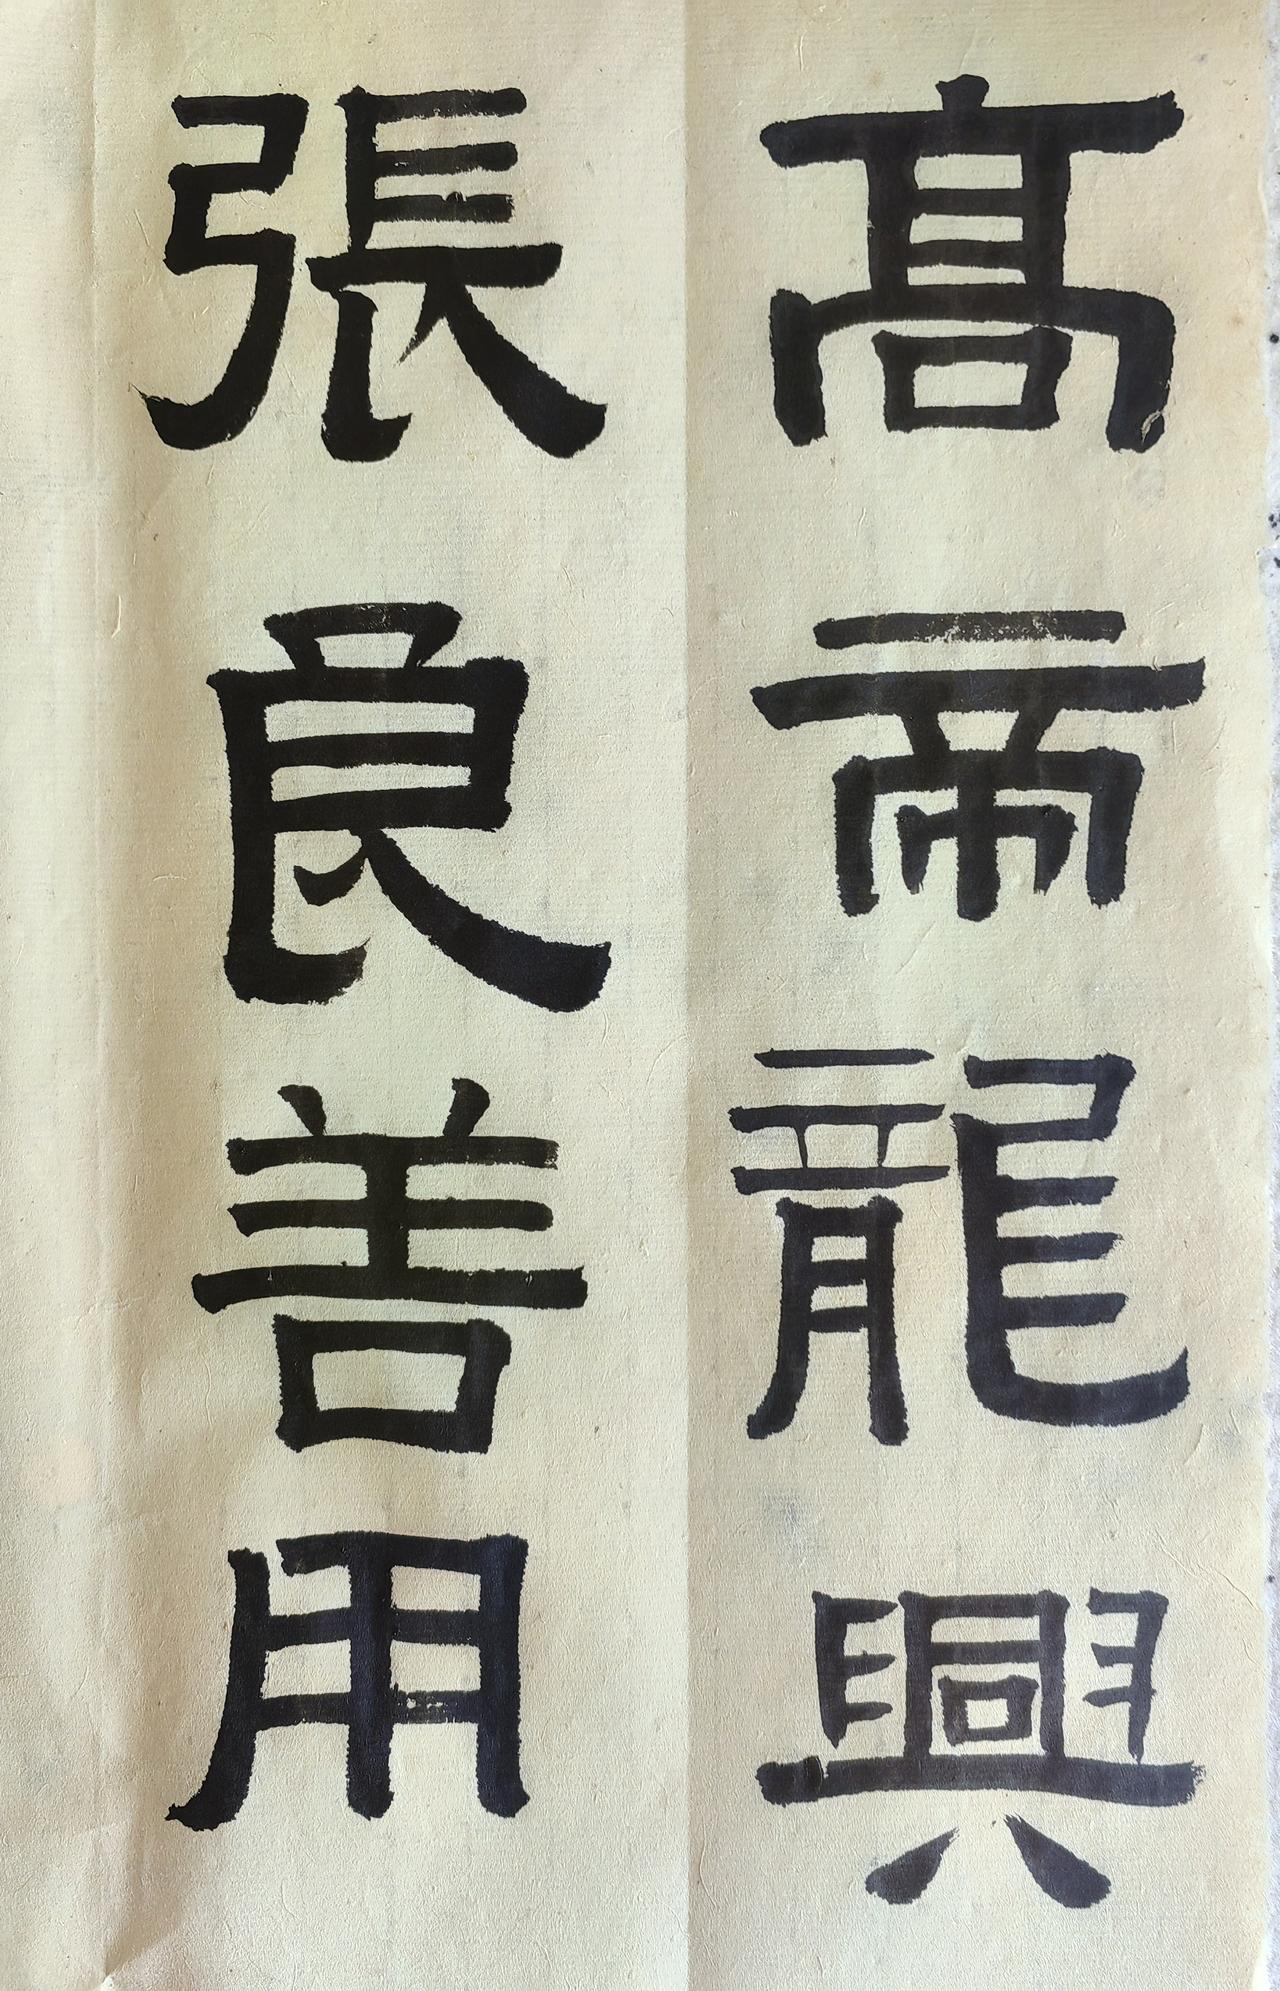 髙帝龍興
張良善用